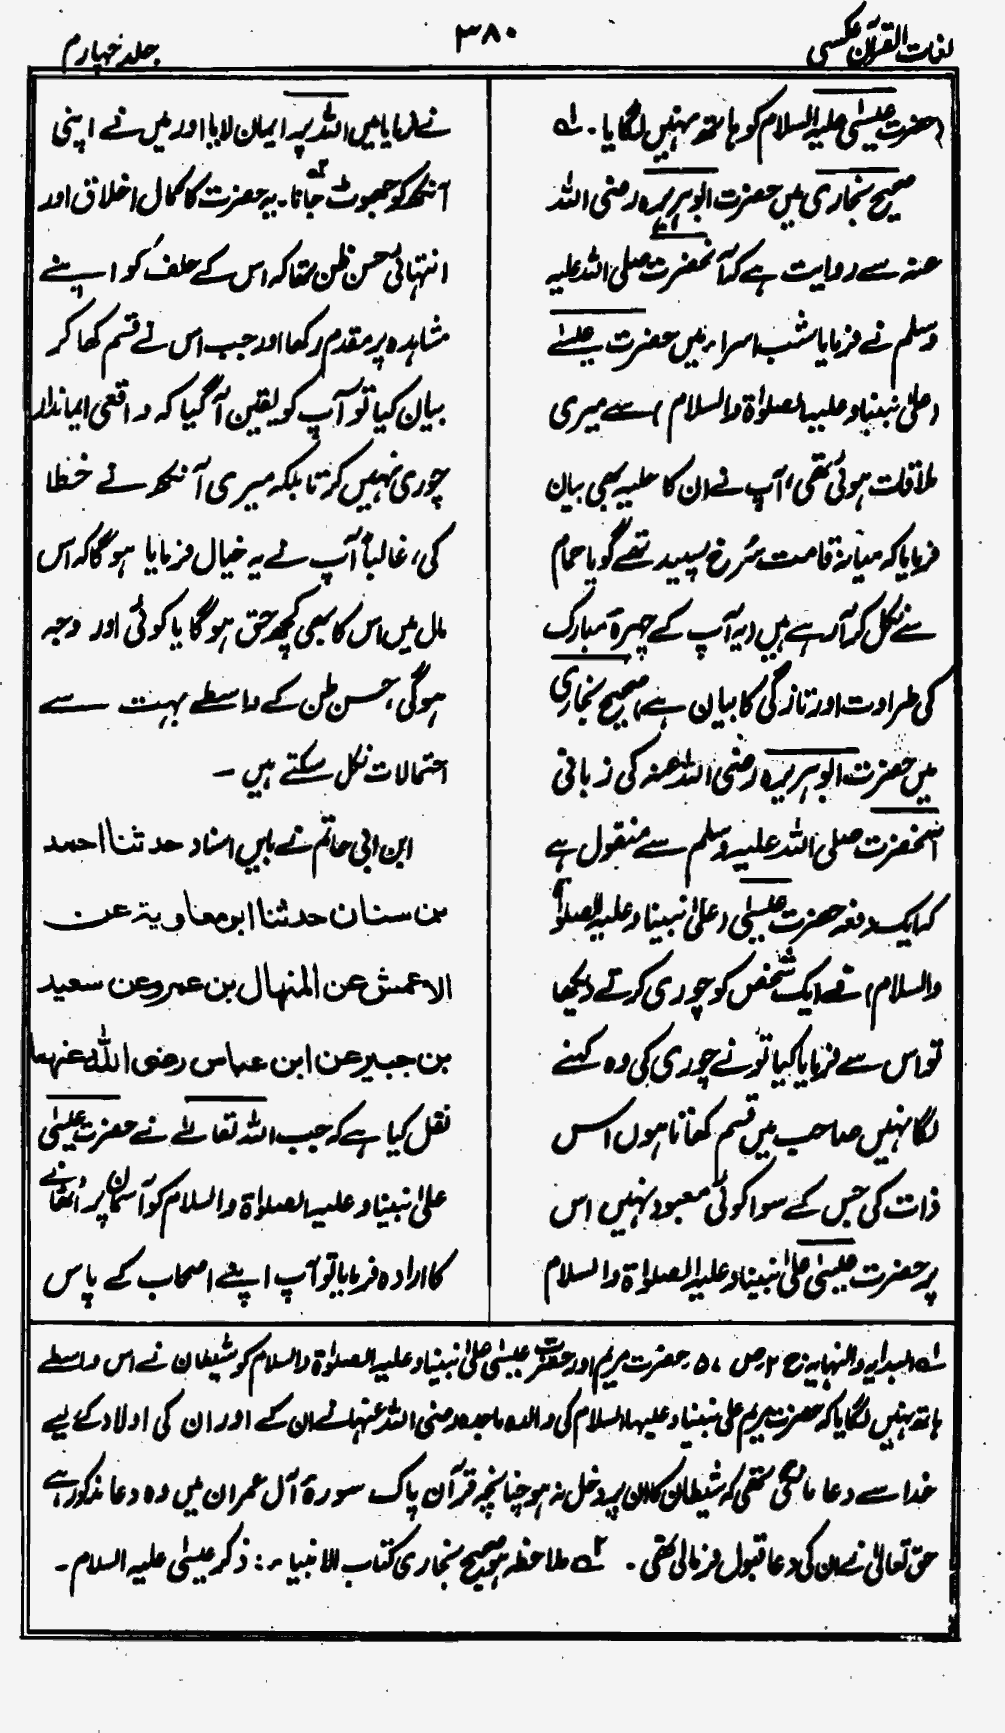 لغات القرآن عکسی
۳۸۰
جلد چہارم
(حضرت عیسیٰ علیہ السلام کو ہاتھ نہیں لگایا۔ لہ
صحیح بخاری میں حضرت ابوہریرہ رضی اللہ
عنہ سے روایت ہے کہ آنحضرت صلی اللہ علیہ
وسلم نے فرمایا شب اسراء میں حضرت عیسےٰ
(علیٰ نبینا وعلیہ الصلوٰۃ والسلام) سے میری
ملاقات ہوئی تھی، آپ نے ان کا حلیہ بھی بیان
فرمایا کہ میانہ قامت سُرخ سپید تھے گویا حمام
سے نکل کر آرہے ہیں (یہ آپ کے چہرۂ مبارک
کی طراوت اور تازگی کا بیان ہے) صحیح بخاری
میں حضرت ابوہریرہ رضی اللہ عنہ کی زبانی
آنحضرت صلی اللہ علیہ وسلم سے منقول ہے
کہ ایک دفعہ حضرت عیسیٰ (علیٰ نبینا وعلیہ الصلوٰۃ
والسلام) نے ایک شخص کو چوری کرتے دیکھا
تو اس سے فرمایا کیا تو نے چوری کی وہ کہنے
لگا نہیں صاحب میں قسم کھاتا ہوں اس
ذات کی جس کے سوا کوئی معبود نہیں اس
پر حضرت عیسیٰ علیٰ نبینا وعلیہ الصلوٰۃ والسلام
نے فرمایا میں اللہ پر ایمان لایا اور میں نے اپنی
آنکھ کو جھوٹ جانا۔ یہ حضرت کا کمال اخلاق اور
انتہائی حسن ظن تھا کہ اس کے حلف کو اپنے
مشاہدہ پر مقدم رکھا اور جب اس نے قسم کھا کر
بیان کیا تو آپ کو یقین آگیا کہ واقعی ایماندار
چوری نہیں کرتا بلکہ میری آنکھ نے خطا
کی، غالباً آپ نے یہ خیال فرمایا ہوگا کہ اس
مال میں اس کا بھی کچھ حق ہوگا یا کوئی اور وجہ
ہوگی، حسن ظن کے واسطے بہت سے
احتمالات نکل سکتے ہیں ۔
ابن ابی حاتم نے بایں اسناد حدثنا احمد
بن سنان حدثنا ابو معاویۃ عن
الاعمش عن المنهال بن عمرو عن سعید
بن جبیر عن ابن عباس رضی اللہ عنہما
نقل کیا ہے کہ جب اللہ تعالےٰ نے حضرت عیسیٰ
علیٰ نبینا وعلیہ الصلوٰۃ والسلام کو آسمان پر اُٹھانے
کا ارادہ فرمایا تو آپ اپنے اصحاب کے پاس
لہ البدایہ والنہایہ ج ۲ ص ۵۷ حضرت مریم اور حضرت عیسیٰ علیٰ نبینا وعلیہ الصلوٰۃ والسلام کو شیطان نے اس واسطے
ہاتھ نہیں لگایا کہ حضرت مریم علیٰ نبینا وعلیہا السلام کی والدہ ماجدہ رضی اللہ عنہا نے ان کے اور ان کی اولاد کے لیے
خدا سے دعا مانگی تھی کہ شیطان کا ان پر دخل نہ ہو چنانچہ قرآن پاک سورۂ آل عمران میں وہ دعا مذکور ہے
حق تعالیٰ نے ان کی دعا قبول فرمالی تھی ۔ ۲ہ ملاحظہ ہو صحیح بخاری کتاب الانبیاء : ذکر عیسیٰ علیہ السلام ۔